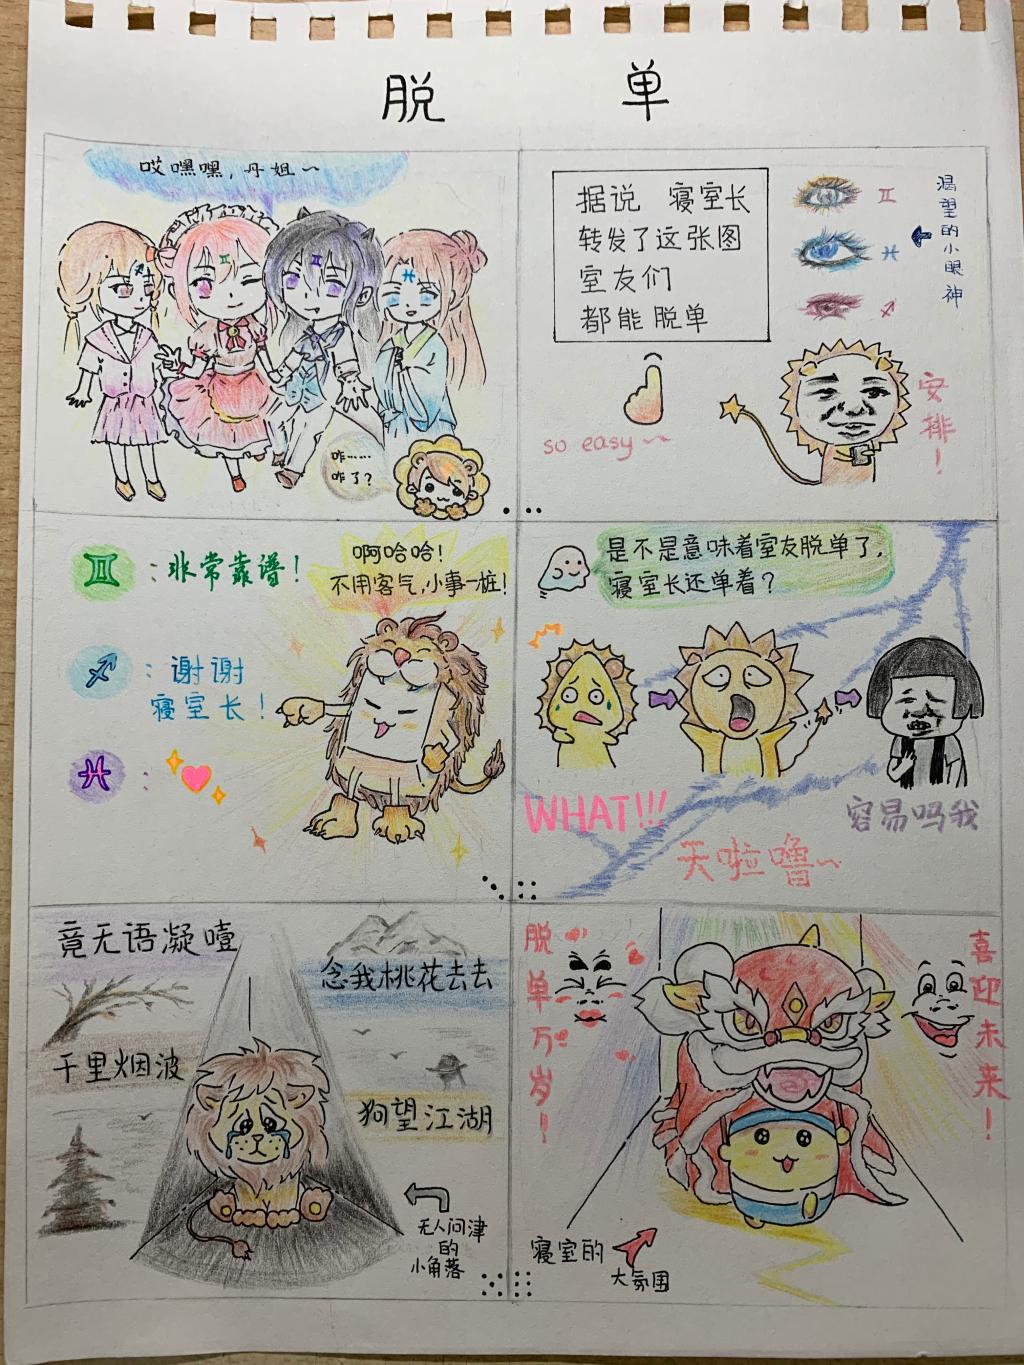 脱单
哎嘿嘿，丹姐～
咋……
咋了？
据说 寝室长
转发了这张图
室友们
都能脱单
♊
♓
♐
渴望的小眼神
so easy～
安排！
♊：非常靠谱！
♐：谢谢
寝室长！
♓：
啊哈哈！
不用客气，小事一桩！
是不是意味着室友脱单了，
寝室长还单着？
WHAT!!!
天啦噜～
容易吗我
竟无语凝噎
念我桃花去去
千里烟波
狗望江湖
无人问津
的
小角落
脱单万岁！
喜迎未来！
寝室的
大氛围